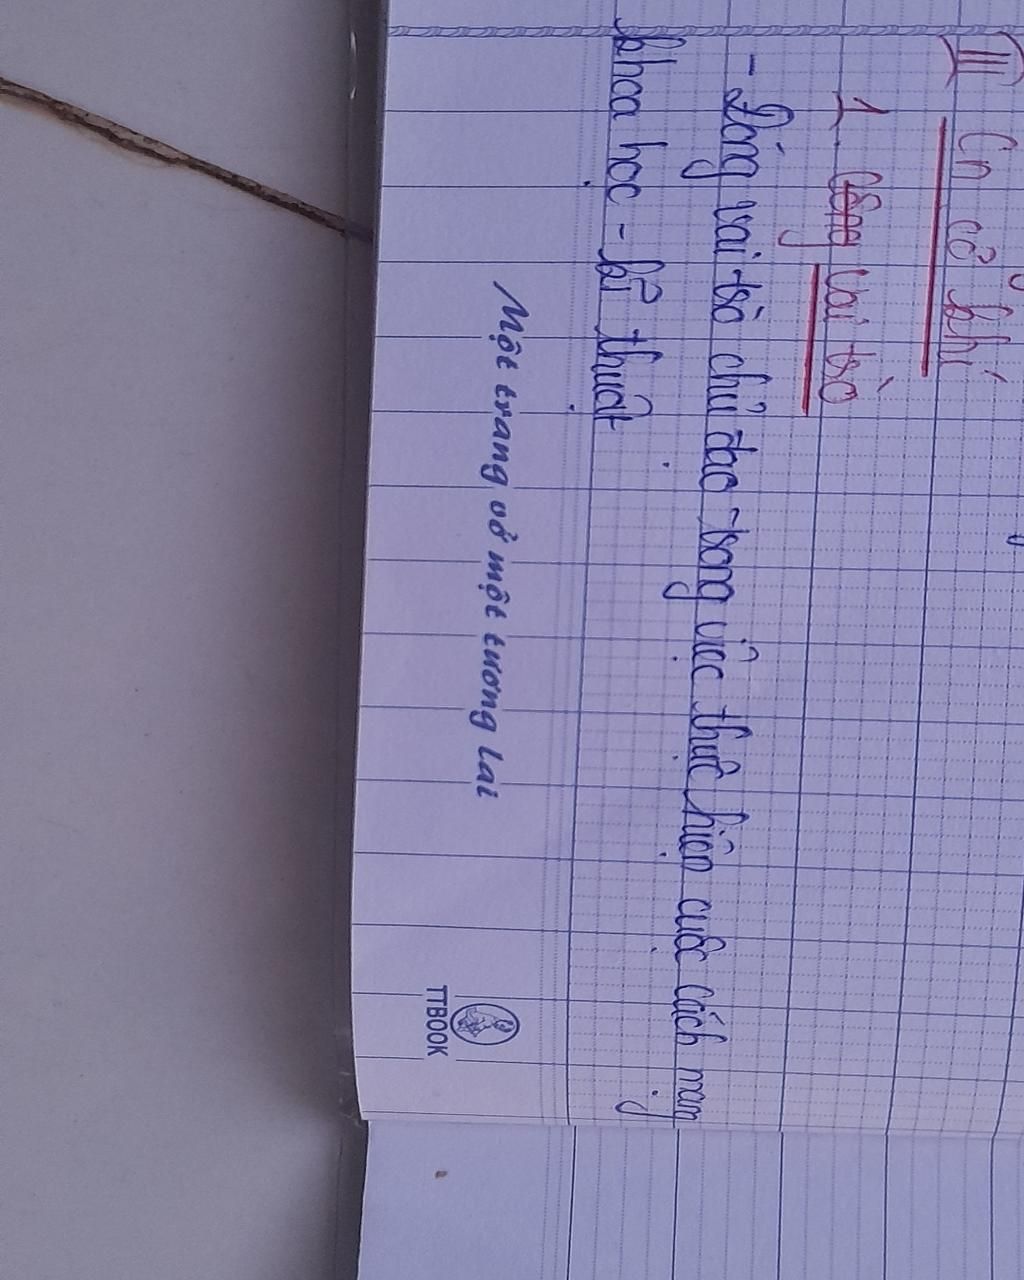 III Cn cơ khí
1. Công vai trò
- Đóng vai trò chủ đạo trong việc thực hiện cuộc cách mạng
khoa học - kĩ thuật
Một trang vở một tương lai
TTBOOK